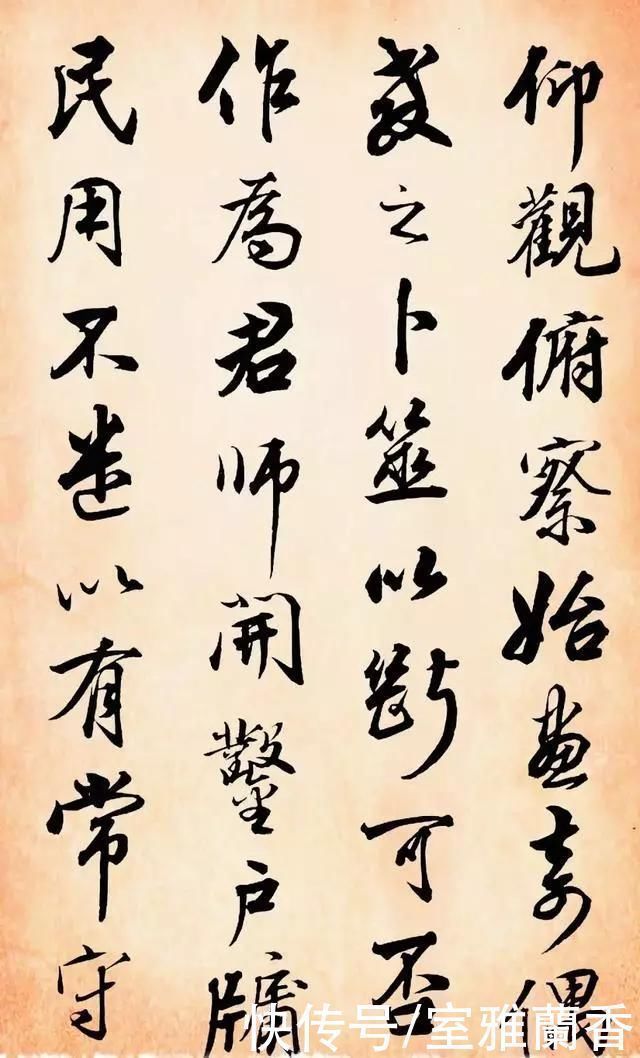 仰觀俯察始畫奇偶
教之卜筮以斷可否
作為君师開鑿户牖
民用不迷以有常守
快传号/室雅蘭香